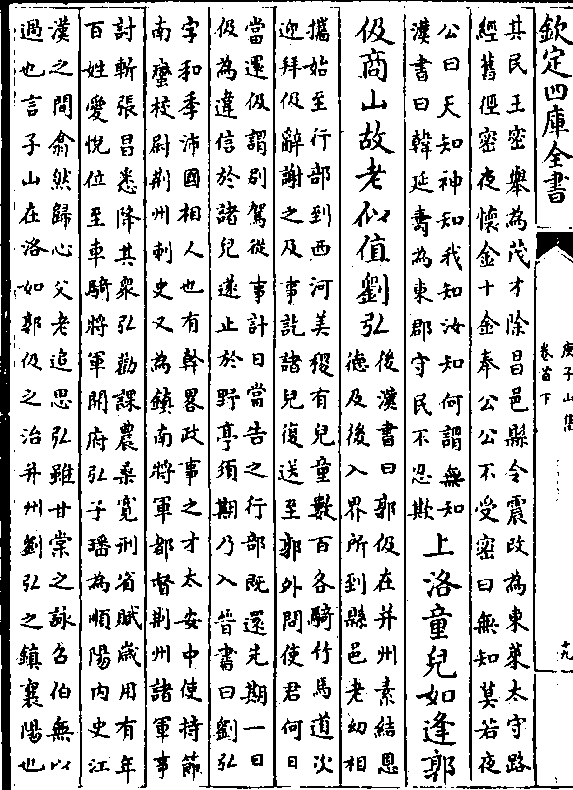 欽定四庫全書
庾子山集
卷首下
十九
其民王密舉為茂才除昌邑縣令震改為東萊太守路
經舊徑密夜懷金十金奉公公不受密曰無知莫若夜
公曰天知神知我知汝知何謂無知
漢書曰韓延壽為東郡守民不忍欺
上洛童兒如逢郭
伋商山故老似值劉弘
後漢書曰郭伋在并州素結恩
德及後入界所到縣邑老幼相
攜始至行部到西河美稷有兒童數百各騎竹馬道次
迎拜伋辭謝之及事訖諸兒復送至郭外問使君何日
當還伋謂别駕從事計日當告之行部既還先期一日
伋為違信於諸兒遂止於野亭須期乃入晉書曰劉弘
字和季沛國相人也有幹畧政事之才太安中使持節
南蠻校尉荆州刺史又為鎮南將軍都督荆州諸軍事
討斬張昌悉降其衆弘勸課農桑寬刑省賦嵗用有年
百姓愛悦位至車騎將軍開府弘子璠為順陽内史江
漢之間翕然歸心父老追思弘雖甘棠之詠召伯無以
過也言子山在洛如郭伋之治并州劉弘之鎮襄陽也